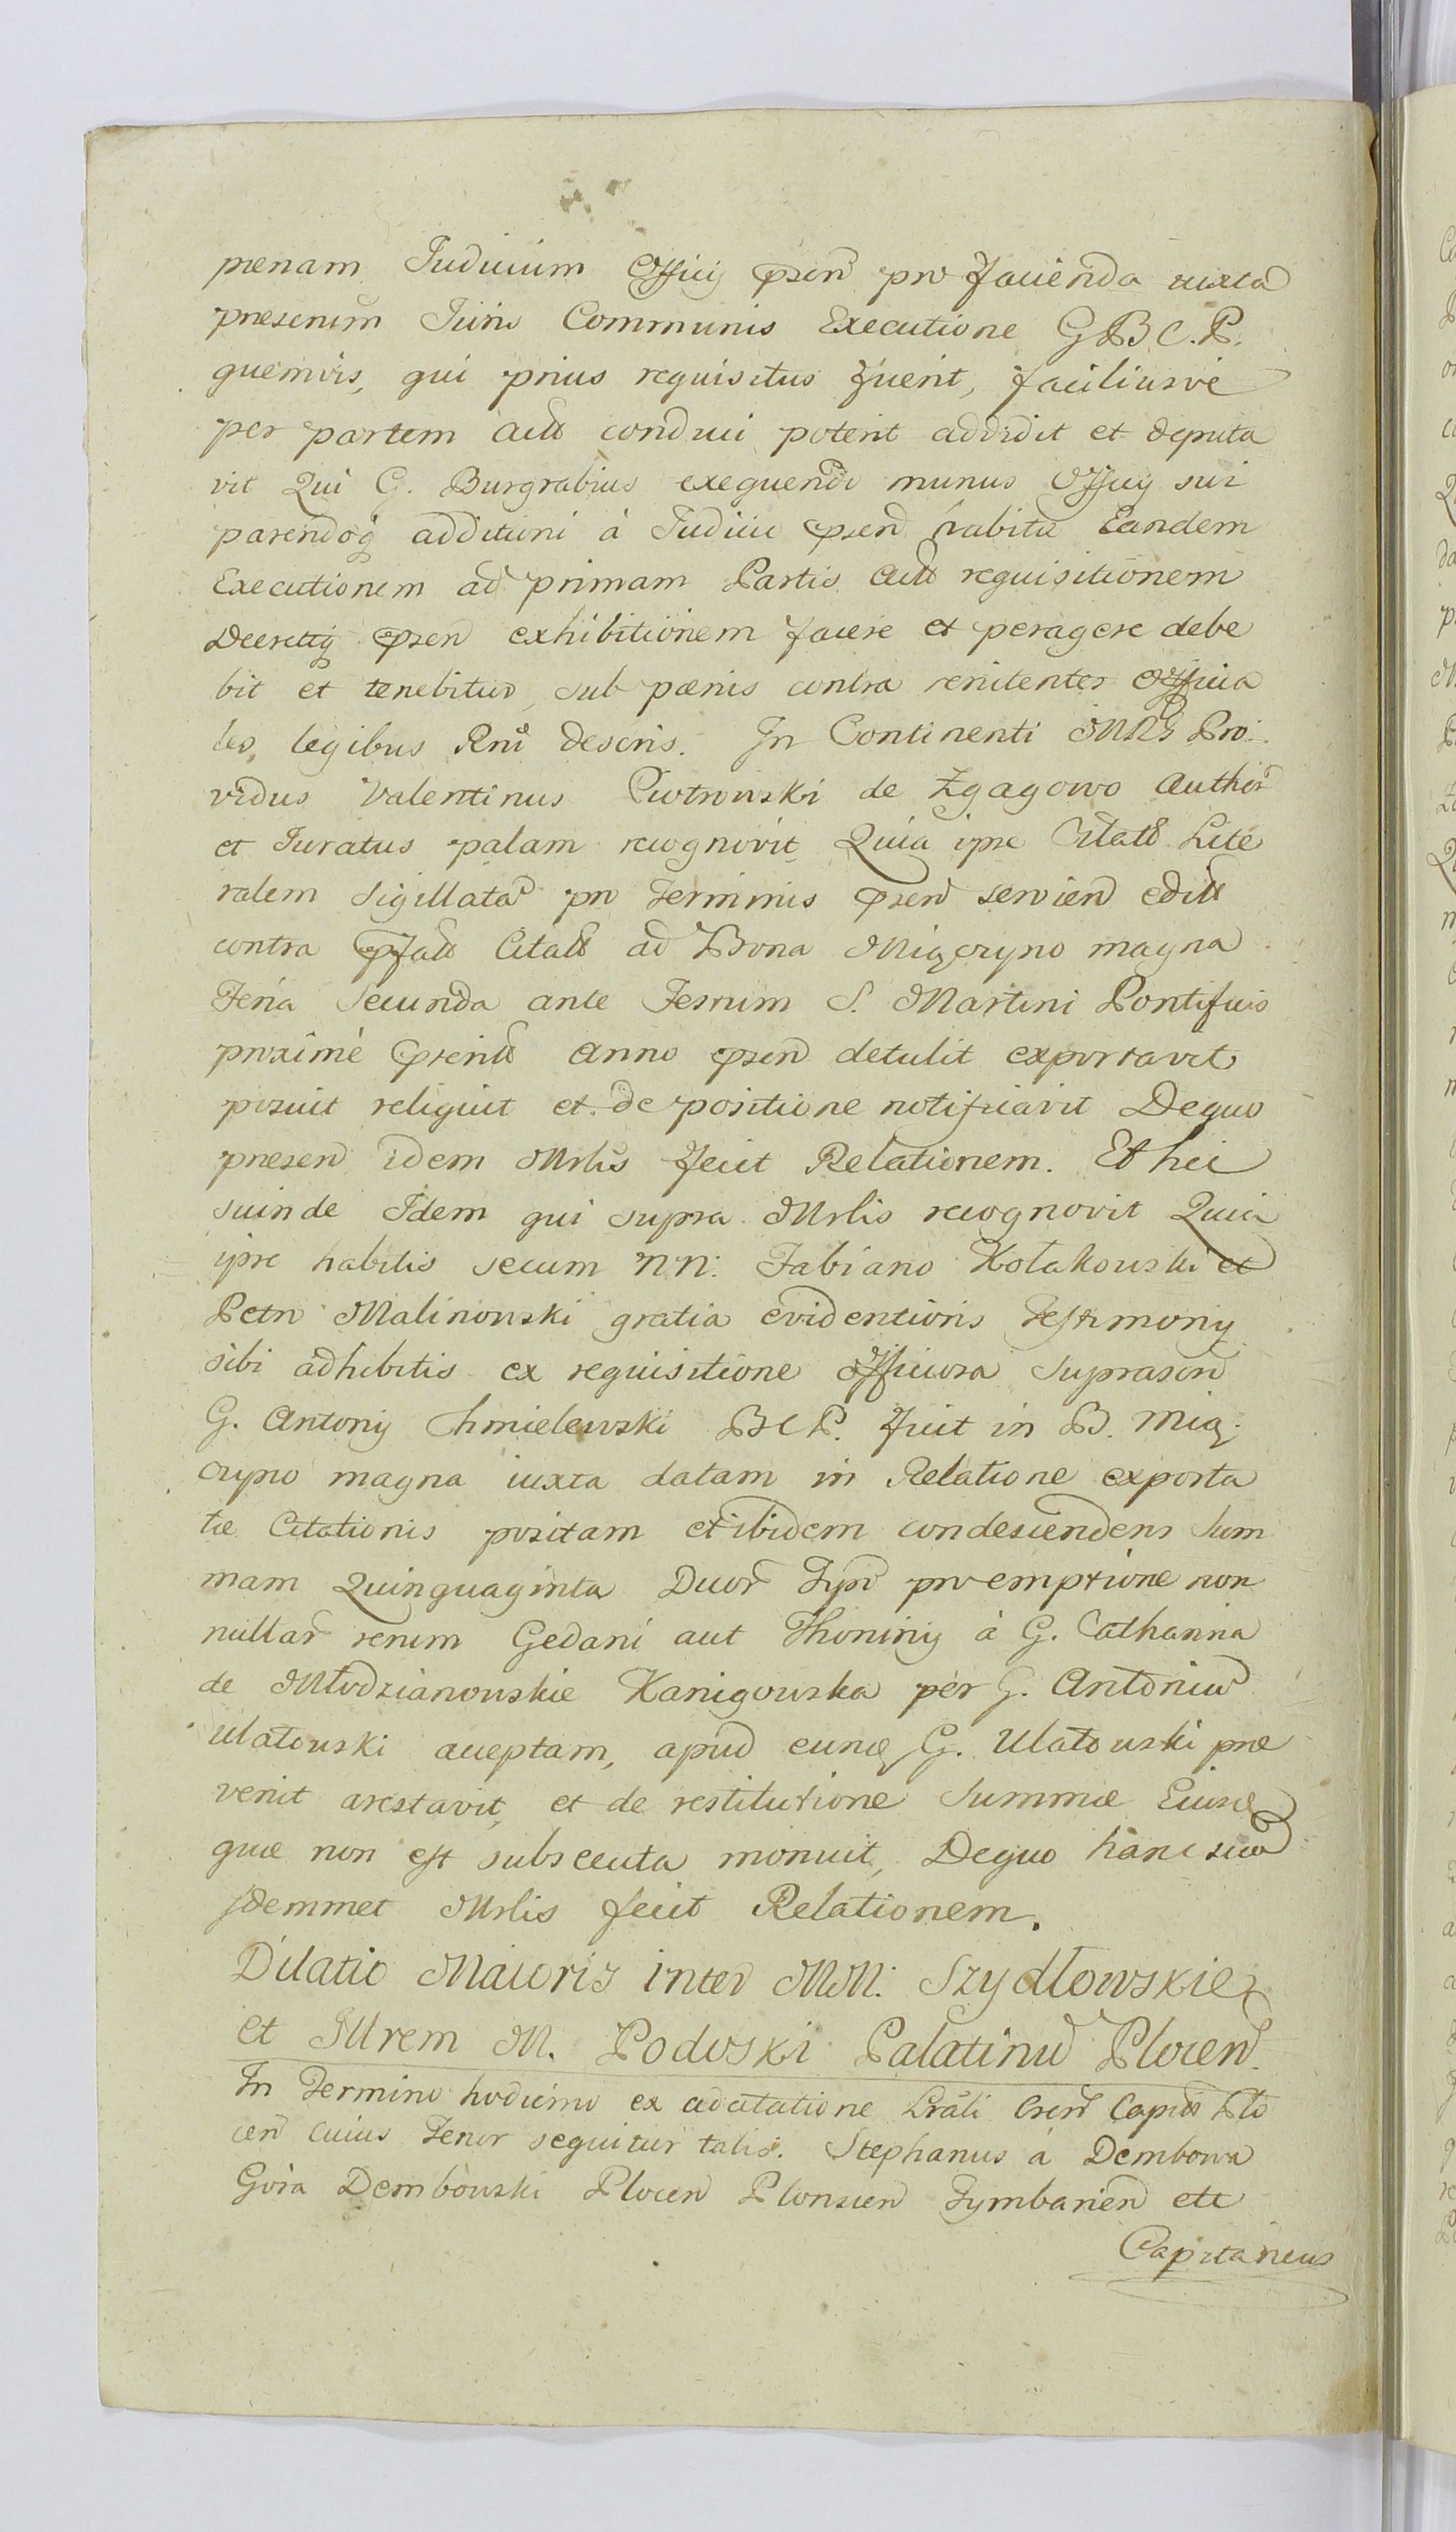 pœnam Judicium Officÿ pñsen pro facienda iuxta
præscrium Juris Communis Executione GBC.P.
quemvis, qui prius requisitus fuerit, faciliusve
per partem Act͠ conduci poterit addidit et deputa
vit Qui G. Burgrabius exequendo munus Officÿ sui
parendoq̃ additioni à Judicio pñsen habitæ Eandem
Executionem ad primam Partis Act͠ requisitionem
Decretiq̃ pñsen exhibitionem facere et peragere debe
bit et tenebitur, sub pœnis contra renitentes Officia
les, legibus Rnĩ descris. In Continenti Mrls Pro:
vidus Valentinus Piotrowski de Zgagowo Author
et Juratus palam recognovit, Quia ipse Citat͠ Lite
ralem Sigillata pro Terminis pñsen servien edit͠
contra pñfat͠ Citat͠ ad Bona Miączyno magna
Feria Secunda ante Festum S. Martini Pontificis
proximè pñterit͠ Anno pñsen detulit exportavit
posuit reliquit et de positione notificavit Dequo
præsen idem Mrlis fecit Relationem. Et hic
suinde Idem qui supra Mrlis recognovit Quia
ipse habitis secum NN: Fabiano Kołakowski et
Petro Malinowski gratia evidentioris Testimonÿ
sibi adhibitis ex requisitione officiosa Suprascri
G. Antonÿ Chmielewski BCP. fuit in B. Mią:
czyno magna iuxta datam in Relatione exporta
tæ Citationis positam et ibidem condescendens Sum
mam Quinquaginta Duor Typ̃ pro emptione non
nullar rerum Gedani aut Thorinÿ à G. Catharina
de Młodzianowskie Kanigowska per G. Antoniu
Ułatowski acceptam, apud eund G. Ułatowski præ
venit arestavit, et de restitutione Summæ Eiusd
quæ non est subsecuta monuit, Dequo hanc sua
Idemmet Mrlis fecit Relationem.
Dilatio Maioris inter MM: Szydłowskie
et Illrem M. Podoski Palatinu Plocen
In Termino hodierno ex adcitatione Lrãli Cren Capĩs Plo
cen cuius Tenor sequitur talis. Stephanus à Dembowa
Góra Dembowski Plocen Plonscen Tymbarien etc
Capitaneus